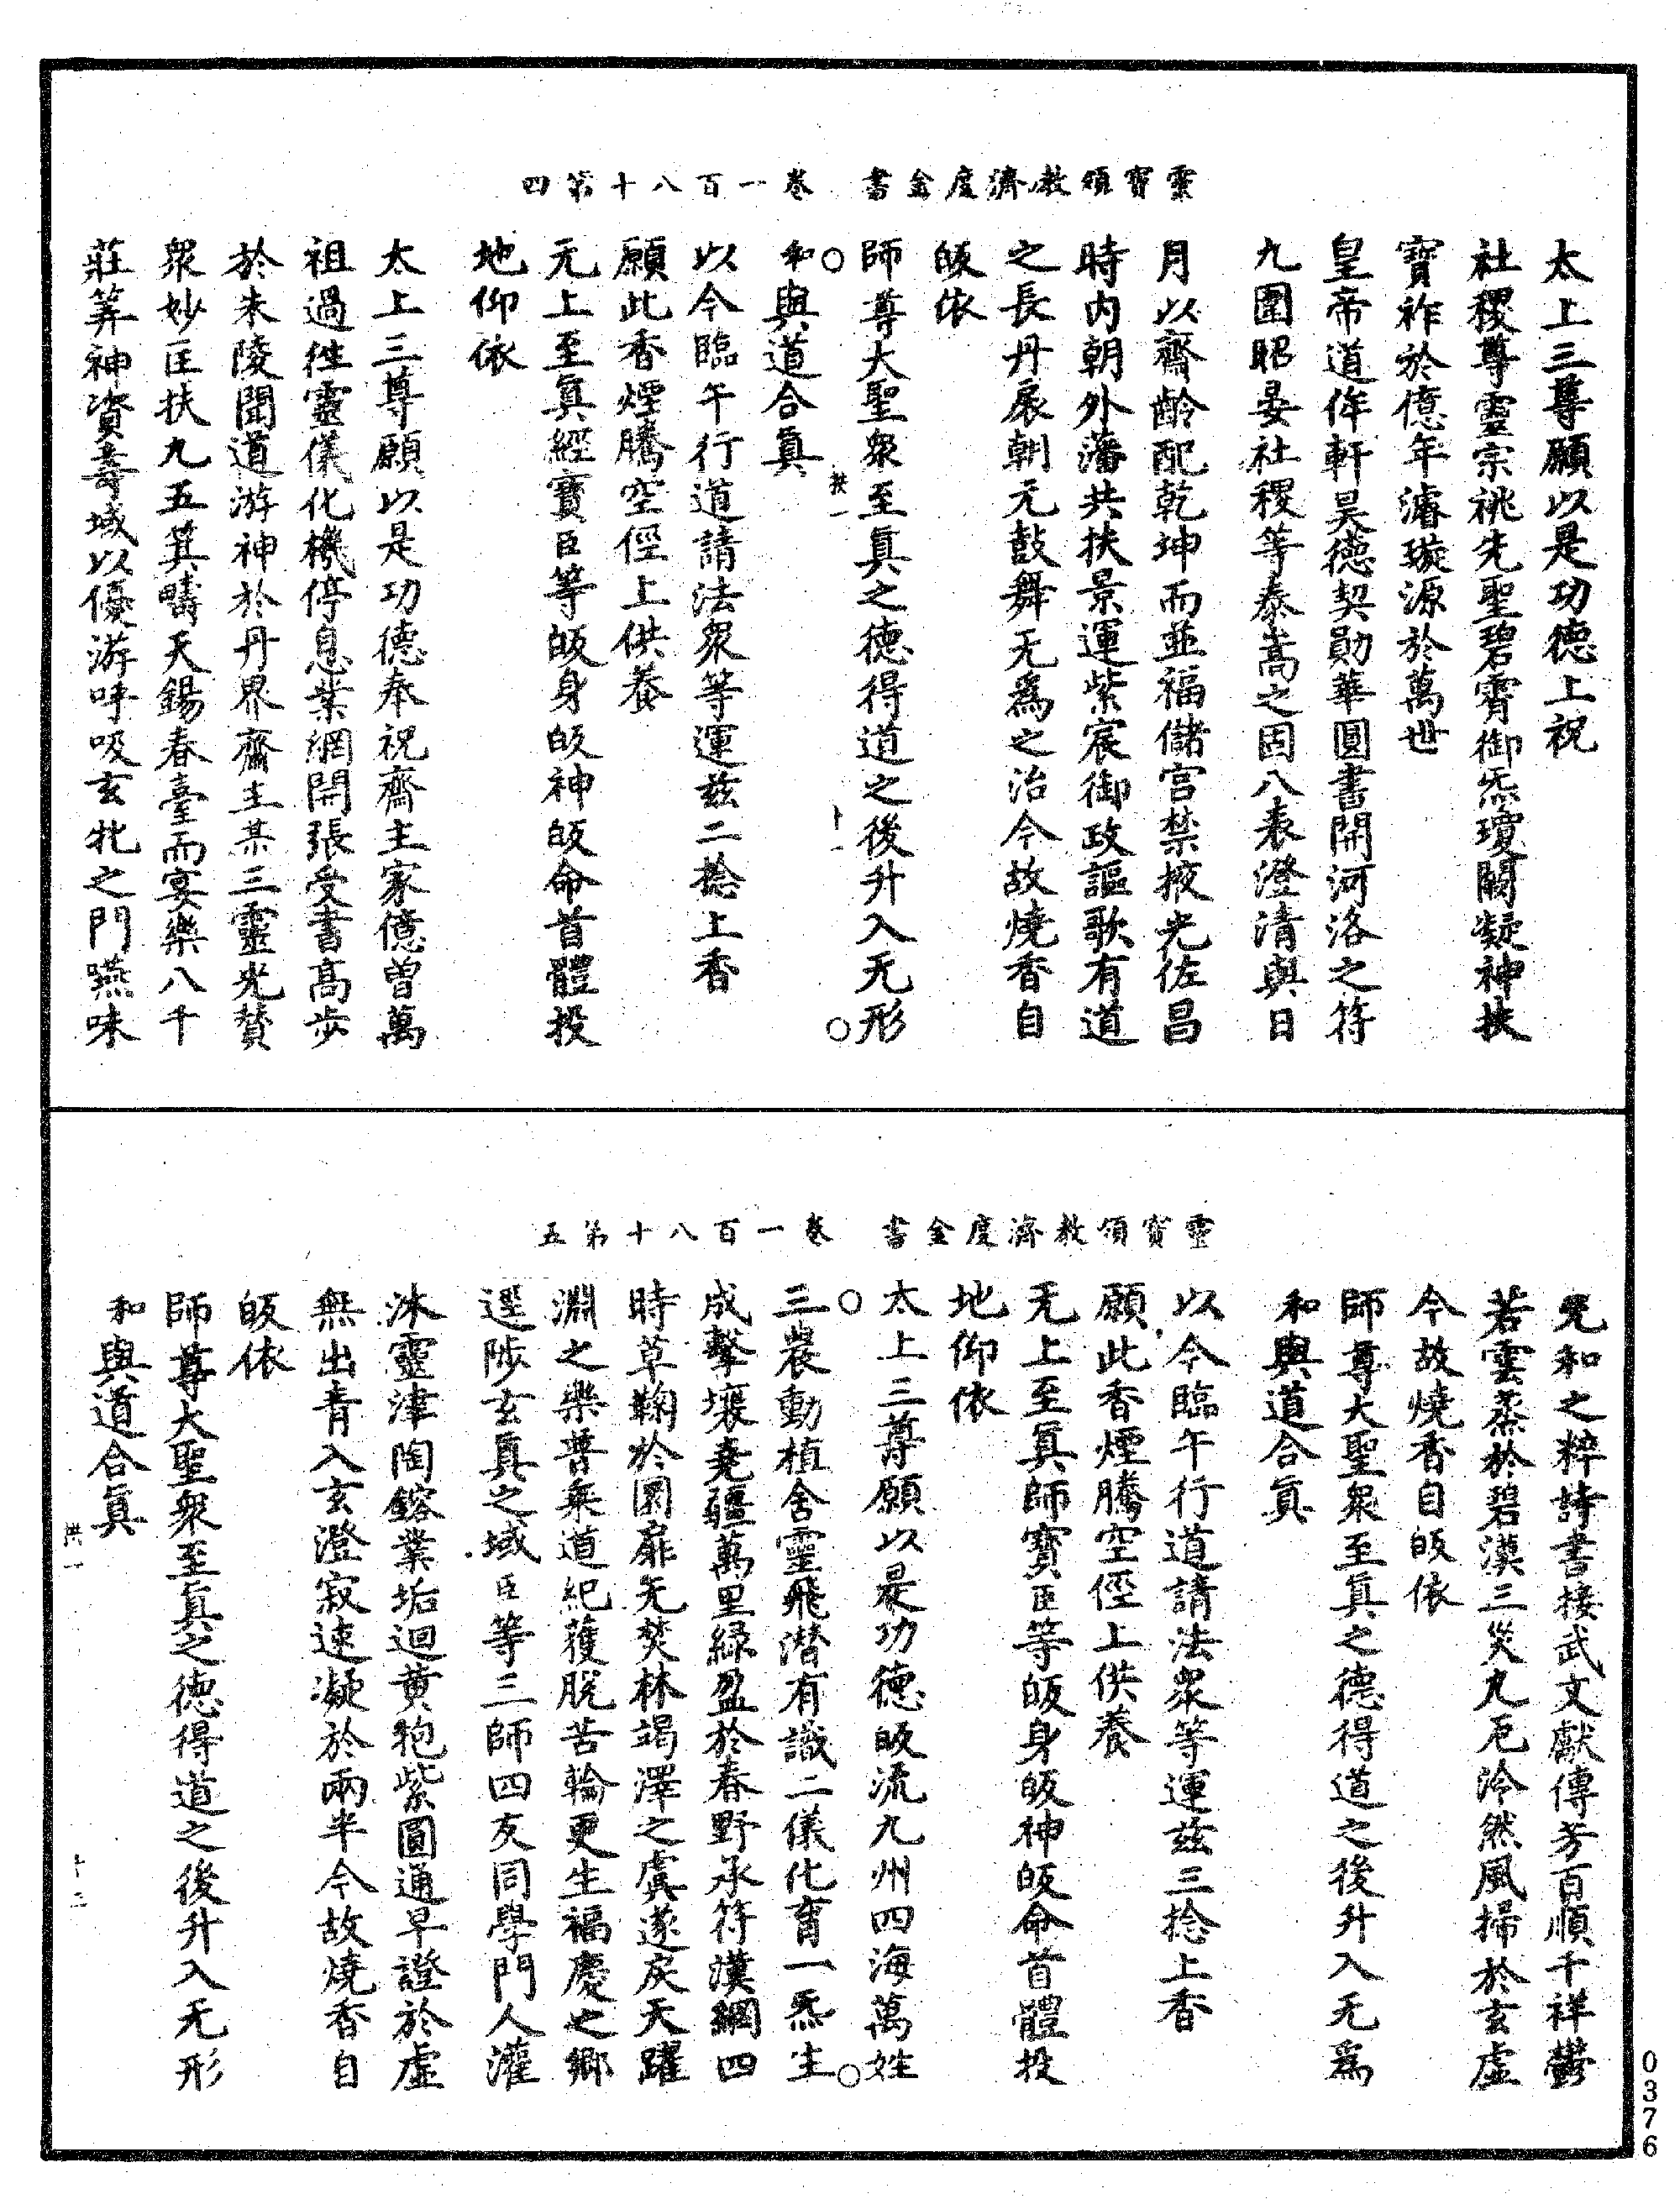 靈寶領教濟度金書　卷一百八十第四
太上三尊願以是功德上祝
社稷尊靈宗祧先聖碧霄御炁瓊闕凝神扶
寶祚於億年濬璇源於萬世
皇帝道侔軒昊德契勛華圓書開河洛之符
九圍昭晏社稷等泰嵩之固八表澄清與日
月以齊齡配乾坤而並福儲宮禁掖光佐昌
時內朝外藩共扶景運紫宸御政謳歌有道
之長丹扆朝元鼓舞无爲之治今故燒香自
皈依
師尊大聖衆至眞之德得道之後升入无形
和與道合眞
以今臨午行道請法衆等運兹二捻上香
願此香煙騰空徑上供養
无上至眞經寶臣等皈身皈神皈命首體投
地仰依
太上三尊願以是功德奉祝齋主家億曾萬
祖過徃靈儀化機停息業網開張受書髙步
於朱陵聞道游神於丹界齋主某三靈光贊
衆妙匡扶九五箕疇天錫春臺而宴樂八千
莊筭神資壽域以優游呼吸玄牝之門嚥味
靈寶領教濟度金書　卷一百八十第五
冲和之粹詩書接武文獻傳芳百順千祥鬱
若雲蒸於碧漢三災九厄泠然風掃於玄虛
今故燒香自皈依
師尊大聖衆至眞之德得道之後升入无爲
和與道合眞
以今臨午行道請法衆等運兹三捻上香
願此香煙騰空徑上供養
无上至眞師寶臣等皈身皈神皈命首體投
地仰依
太上三尊願以是功德皈流九州四海萬姓
三農動植含靈飛潛有識二儀化育一炁生
成擊壤堯疆萬里綠盈於春野承符漢網四
時草鞠於圜扉无焚林竭澤之虞遂戾天躍
淵之樂普乘道紀獲脫苦輪更生福慶之鄉
逕陟玄眞之域臣等三師四友同學門人灌
沐靈津陶鎔業垢迴黃抱紫圓通早證於虛
無出青入玄澄寂速凝於兩半今故燒香自
皈依
師尊大聖衆至眞之德得道之後升入无形
和與道合眞
0376